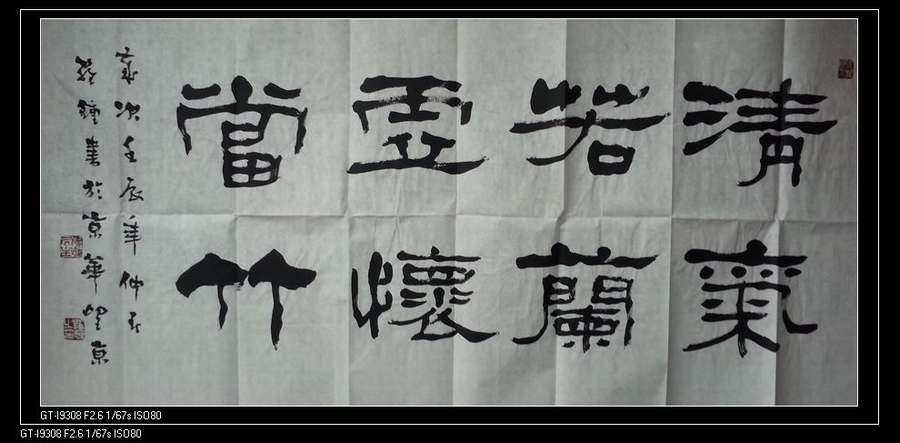 清氣
若蘭
虛懷
當竹
歲次壬辰年仲
鍾書於京華望京
GT-I9308 F2.6 1/67s ISO80
GT-I9308 F2.6 1/67s ISO80